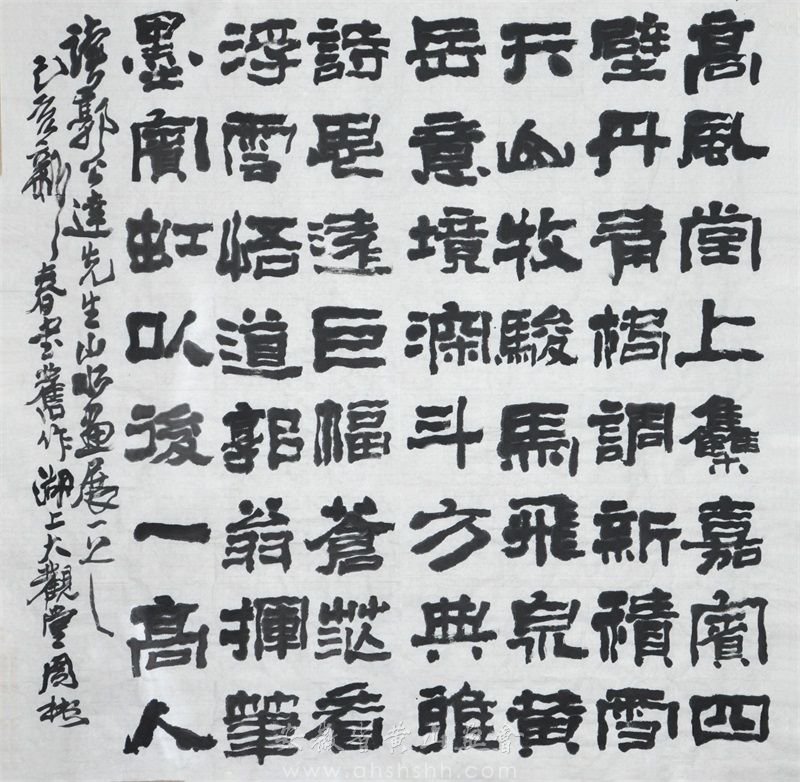 高風堂上雧嘉賓四
壁丹青格調新積雪
天山牧駿馬飛泉黃
岳意境深斗方典雅
詩思遠巨幅蒼茫看
浮雲悟道郭翁揮筆
墨賓虹以後一高人
讀郭公達先生山水畫展一
己亥新春書舊作湖上大觀堂周
安徽省黃山畫會
www.ahshshh.com